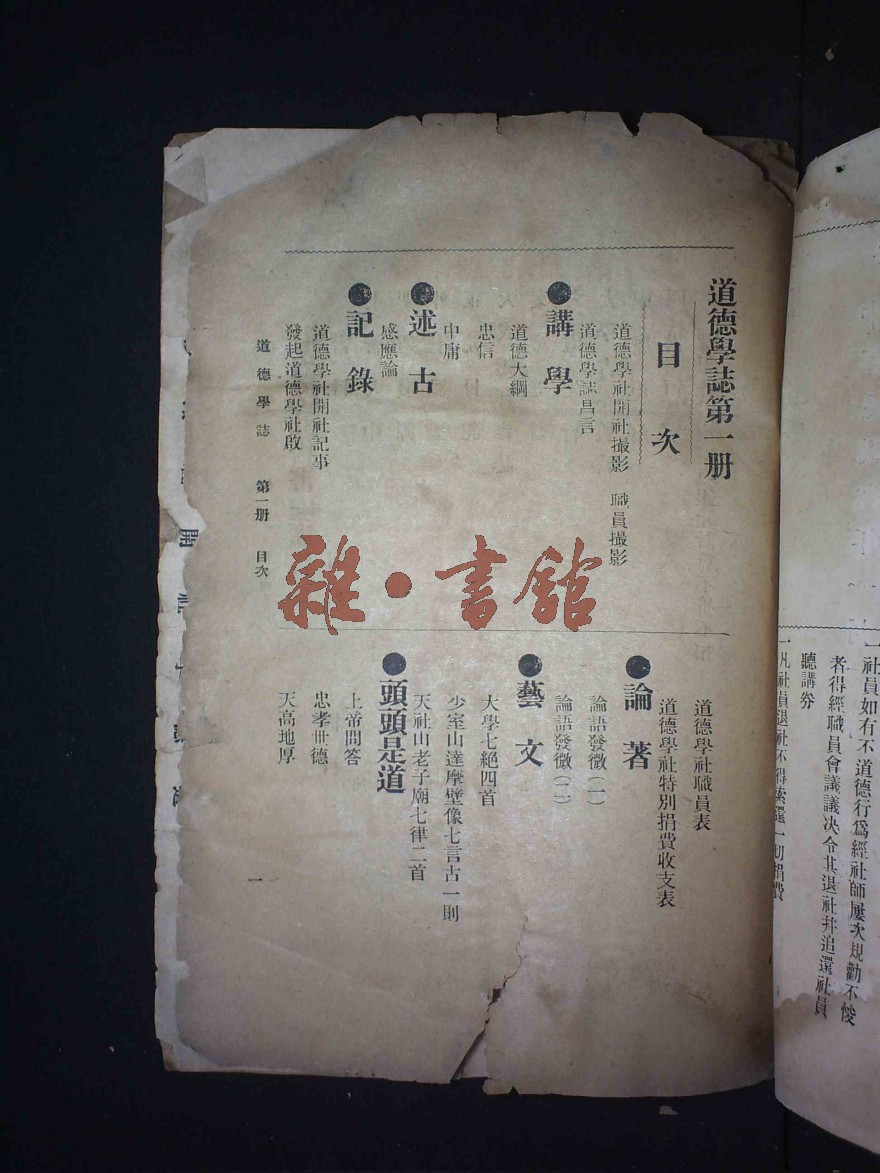 道德學誌第一册
目次
道德學社開社撮影　職員撮影
道德學誌昌言
●講學
道德大綱
忠信
中庸
●述古
感應論
●記錄
道德學社開社記事
發起道德學社啟
道德學社職員表
道德學社特別捐費收支表
●論著
論語發微(一)
論語發微(二)
●藝文
大學七絕四首
少室山達摩壁像七言古一則
天社山老子廟七律二首
●頭頭是道
上帝問答
忠孝世德
天高地厚
道德學誌　第一册　目次
一
雜·書館
一社員如有不道德行爲經社師屢次規勸不悛
者得經職員會議議决令其退社并追還社員
聽講券
一凡社員退社不得索還一切捐費